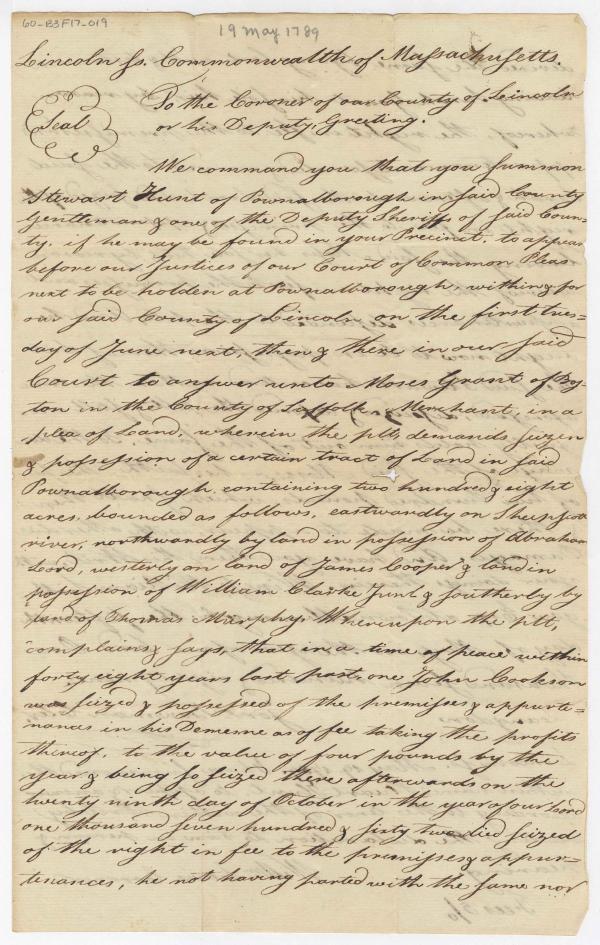 60-B3F17-019
19 May 1789
Lincoln ss. Commonwealth of Massachusetts.
Seal
To the Coroner of our County of Lincoln
or his Deputy, Greeting.
We command you that you summon
Stewart Hunt of Pownalborough in said County
Gentleman & one of the Deputy Sheriffs of said Coun=
ty, if he may be found in your Precinct, to appear
before our Justices of our Court of Common Pleas
next to be holden at Pownalborough, within & for
our said County of Lincoln on the first tues=
day of June next, then & there in our said
Court to answer unto Moses Grant of Bos=
ton in the County of Suffolk, Merchant, in a
plea of Land, wherein the plt, demands seizen
& possession of a certain tract of Land in said
Pownalborough containing two hundred & eight
acres, bounded as follows, eastwardly on Sheepscott
river, northwardly by land in possession of Abraham
Lord, westerly on land of James Cooper & land in
possession of William Clarke Junr. & southerly by
land of Thomas Murphy. Whereupon the plt,
complains & says, that in a time of peace within
forty eight years last past, one John Cookson
was seized & possessed of the premisses & appurte=
nances in his Demesne as of fee taking the profits
thereof, to the value of four pounds by the
year & being so seized there afterwards on the
twenty ninth day of October in the year of our Lord
one thousand seven hundred & sixty two died seized
of the right in fee to the premisses & appur=
tenances, he not having parted with the same nor